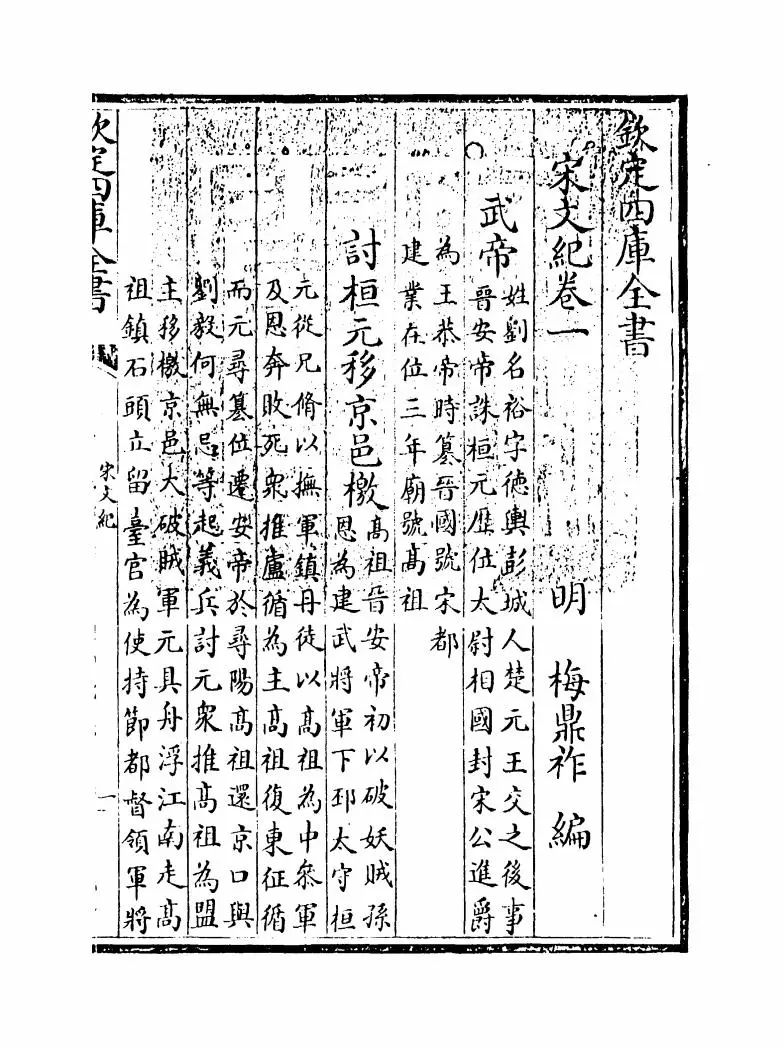 欽定四庫全書
宋文紀卷一
明 梅鼎祚 編
武帝
姓劉名裕字德輿彭城人楚元王交之後事
晉安帝誅桓元歷位太尉相國封宋公進爵
為王恭帝時篡晉國號宋都
建業在位三年廟號高祖
討桓元移京邑檄
高祖晉安帝初以破妖賊孫
恩為建武將軍下邳太守桓
元從兄脩以撫軍鎮丹徒以高祖為中叅軍
及恩奔敗死衆推盧循為主高祖復東征循
而元尋篡位遷安帝於尋陽高祖還京口與
劉毅何無忌等起義兵討元衆推高祖為盟
主移檄京邑大破賊軍元具舟浮江南走高
祖鎮石頭立留臺官為使持節都督領軍將
欽定四庫全書
宋文紀
一